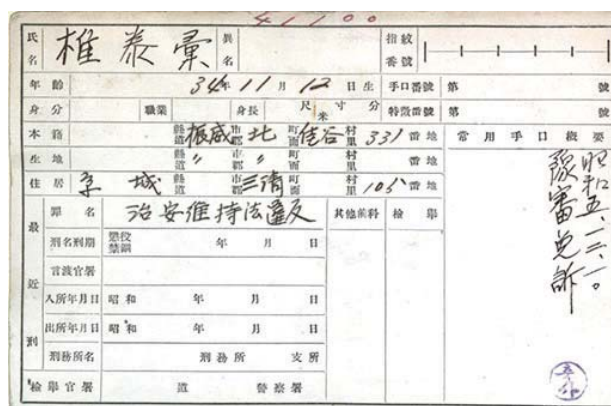 41100
氏名 椎泰彙 異名 指紋番號
年齡 34年11月12日生 手口番號 第 號
身分 職業 身長 尺寸分 米 特徵番號 第 號
本籍 縣道 振威 市郡 北 町面 佳谷 村里 331 番地 常用手口概要
生地 縣道 〃 市郡 〃 町面 村里 番地
住居 京城 縣道 市郡 三淸 町面 村里 105 番地
昭和五、一二、一〇
豫審免訴
最近刑
罪名 治安維持法違反 其他前科 檢擧
刑名刑期 懲役 禁錮 年月日
言渡官署
入所年月日 昭和 年月日
出所年月日 昭和 年月日
刑務所名 刑務所 支所
檢擧官署 道 警察署